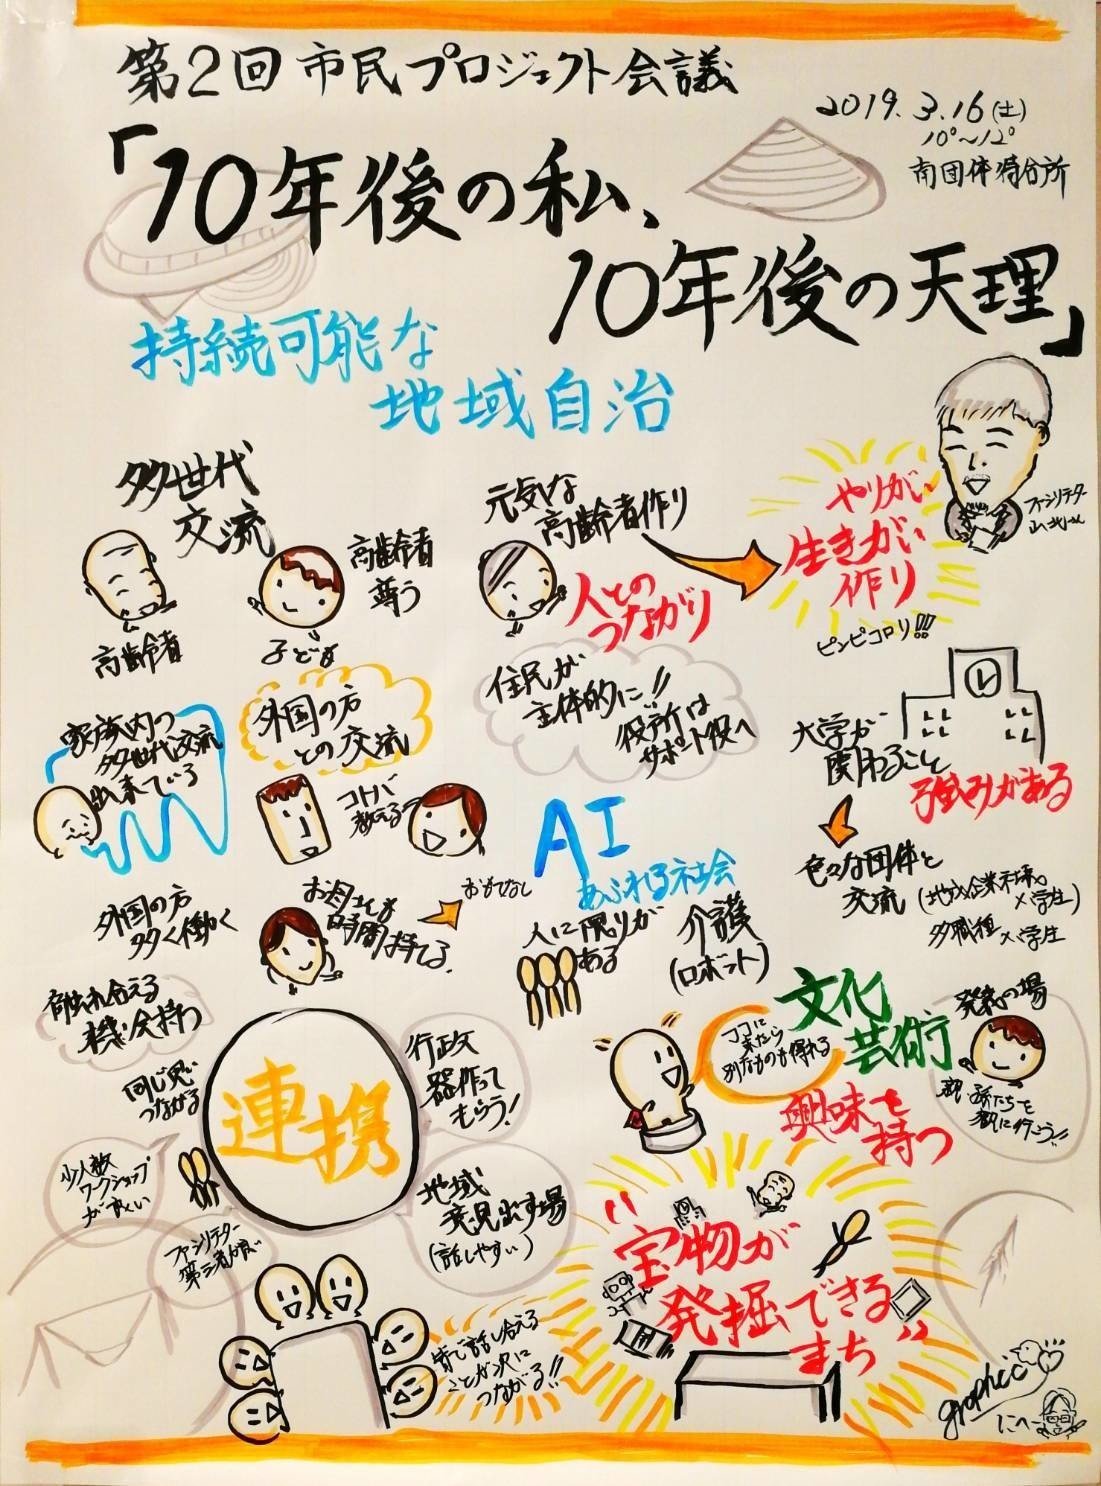 第2回 市民プロジェクト会議
2019.3.16(土)
10°~12°
南団体待合所
「10年後の私、
10年後の天理」
持続可能な
地域自治
多世代
交流
高齢者
尊う
高齢者
子ども
元気な
高齢者作り
人との
つながり
やりがい
生きがい
作り
ピンピコロリ!!
ファシリテーター
家族内の
多世代交流
出来ている
外国の方
との交流
コトバ
教える
住民が
主体的に!!
役所は
サポート役へ
大学が
関わること
強みがある
色々な団体と
交流
多職種×学生
AI
あふれる社会
人に限りが
ある
介護
(ロボット)
外国の方
多く働く
お母さんも
時間持てる。
おもてなし
触れ合える
機会持つ
同じ思い
つながる
連携
行政
器作って
もらう!
文化
芸術
興味を
持つ
ココに
来たら
別なものも得れる
発表の場
親・孫たちを
観に行こう!!
少人数
ワークショップ
が良い
ファシリテーター
第三者が良い
地域
発見出す場
(話しやすい)
皆で話し合える
ことが次に
つながる!!
"宝物が
発掘できる
まち"
graphcc
にへー